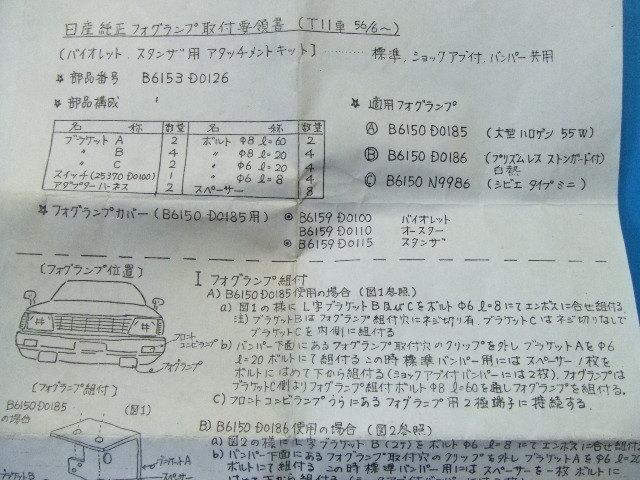 日産純正フォグランプ取付要領書 (T11車 56/6〜)
(バイオレット、スタンザ用 アタッチメントキット) ‥‥‥ 標準, ショックアブ付, バンパー共用
★ 部品番号 B6153 D0126
★ 部品構成
名称 数量 名称 数量
ブラケット A 2 ボルト Φ8 ℓ=60 2
〃 B 4 〃 Φ8 ℓ=20 4
〃 C 2 〃 Φ6 ℓ=20 2
スイッチ(25370 D0100) 1 〃 Φ6 ℓ=8 4
アダプターハーネス 2 スペーサー 8
★ 適用フォグランプ
Ⓐ B6150 D0185 (大型ハロゲン 55W)
Ⓑ B6150 D0186 (プリズムレス ストンガード付) 白熱
Ⓒ B6150 N9986 (シビエ タイプ ミニ)
★ フォグランプカバー (B6150 D0185用)
◉ B6159 D0100 バイオレット
B6159 D0110 オースター
◉ B6159 D0115 スタンザ
[フォグランプ位置]
フロントコンビランプ
フォグランプ
[フォグランプ組付]
B6150 D0185の場合 (図1)
ブラケットA
ブラケットB
スペーサー
I フォグランプ組付
A) B6150 D0185使用の場合 (図1参照)
a) 図1の様にL字ブラケットB及びCをボルトΦ6 ℓ=8にてエンボスに合せ組付る
注) ブラケットBはフォグランプ組付穴にネジ切り有、ブラケットCはネジ切りなしで
ブラケットCを内側に組付る
b) バンパー下面にあるフォグランプ取付穴のクリップを外しブラケットAをΦ6
ℓ=20ボルトにて組付る この時標準バンパー用にはスペーサー1枚を
ボルトにはめて下から組付る(ショックアブ付バンパーには2枚)。フォグランプは
ブラケットC側よりフォグランプ組付ボルトΦ8 ℓ=60を通しフォグランプを組付る。
C) フロントコンビランプうらにあるフォグランプ用2極端子に接続する。
B) B6150 D0186使用の場合 (図2参照)
a) 図2の様にL字ブラケットB(2ケ)をボルトΦ6 ℓ=8にてエンボスに合せ組付
b) バンパー下面にあるフォグランプ取付穴のクリップを外しブラケットAをΦ6 ℓ=20
ボルトにて組付る この時標準バンパー用にはスペーサーを一枚ボルトに